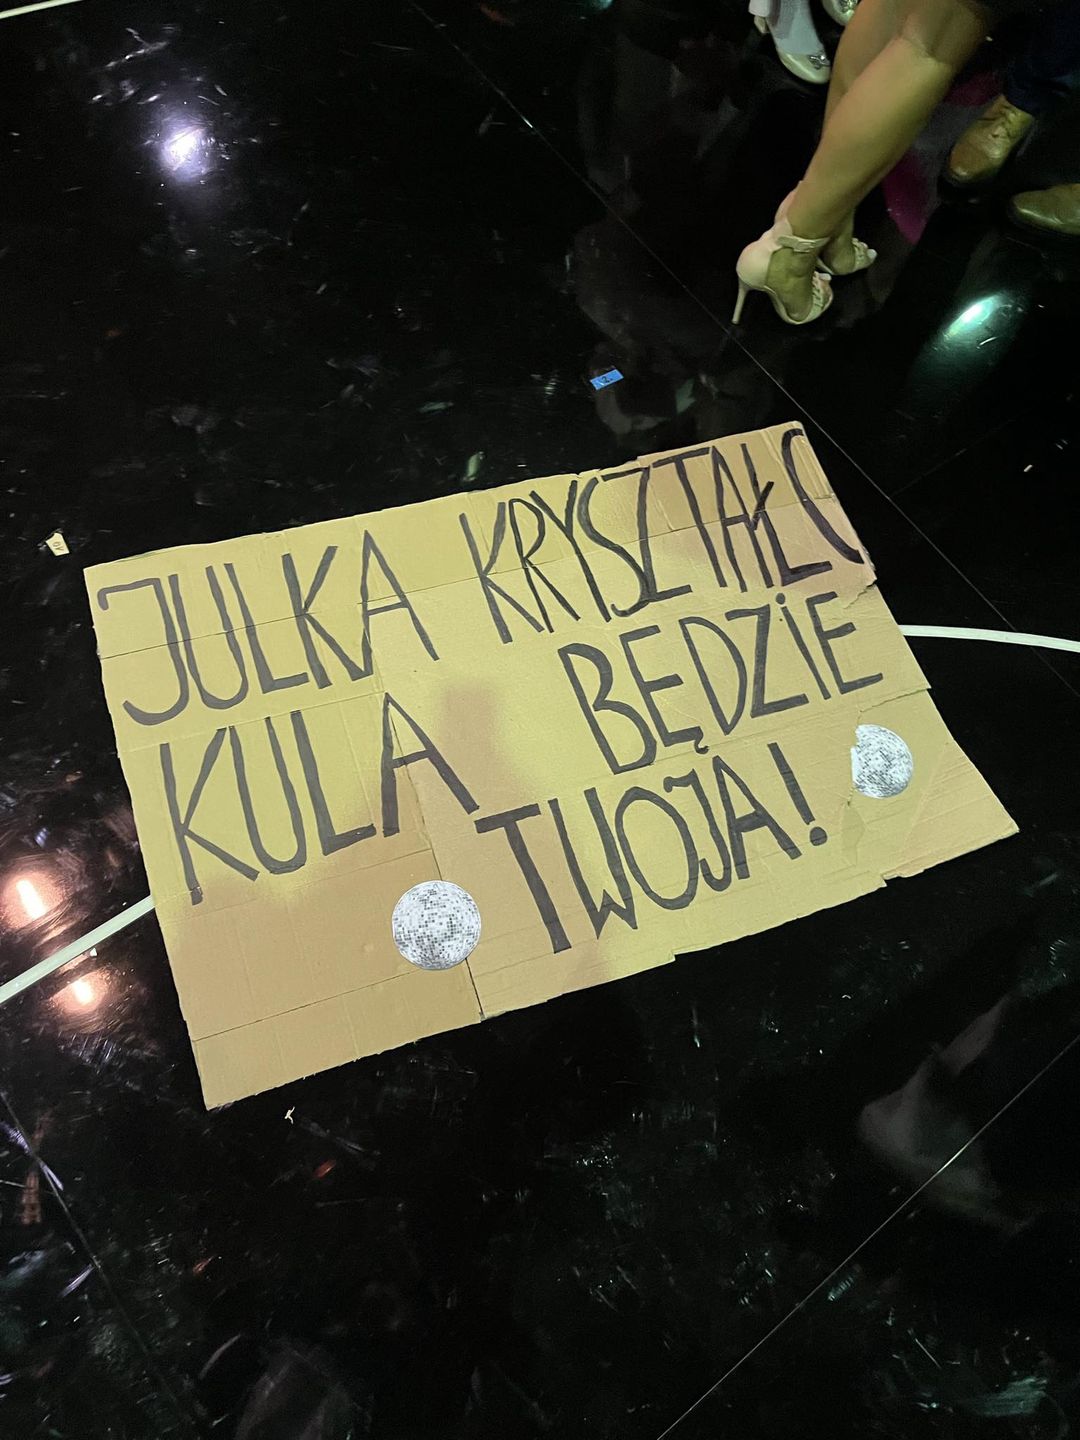 JULKA KRYSZTAŁO
KULA BĘDZIE
TWOJA!